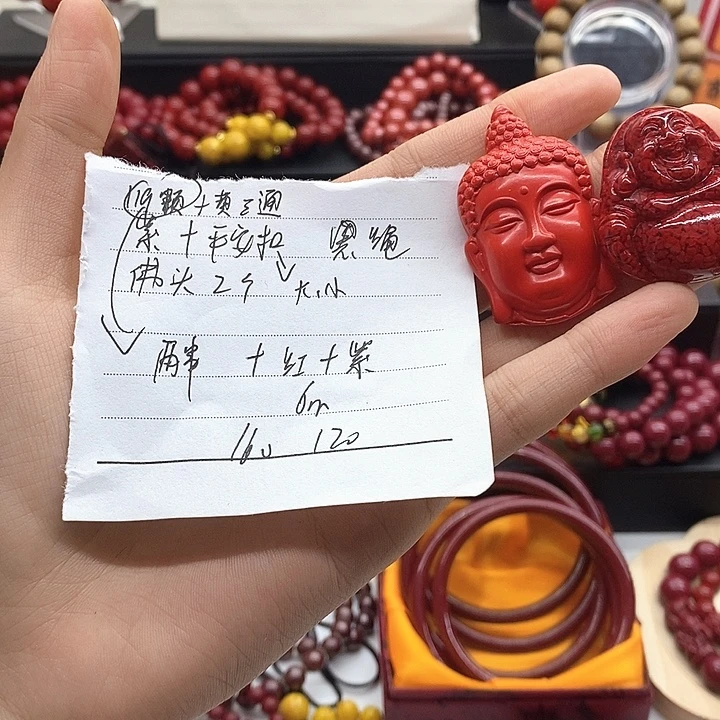 19颗+黄三通
紫+平安扣 黑绳
佛头2个 大小
两串 +红+紫
6m
160 120